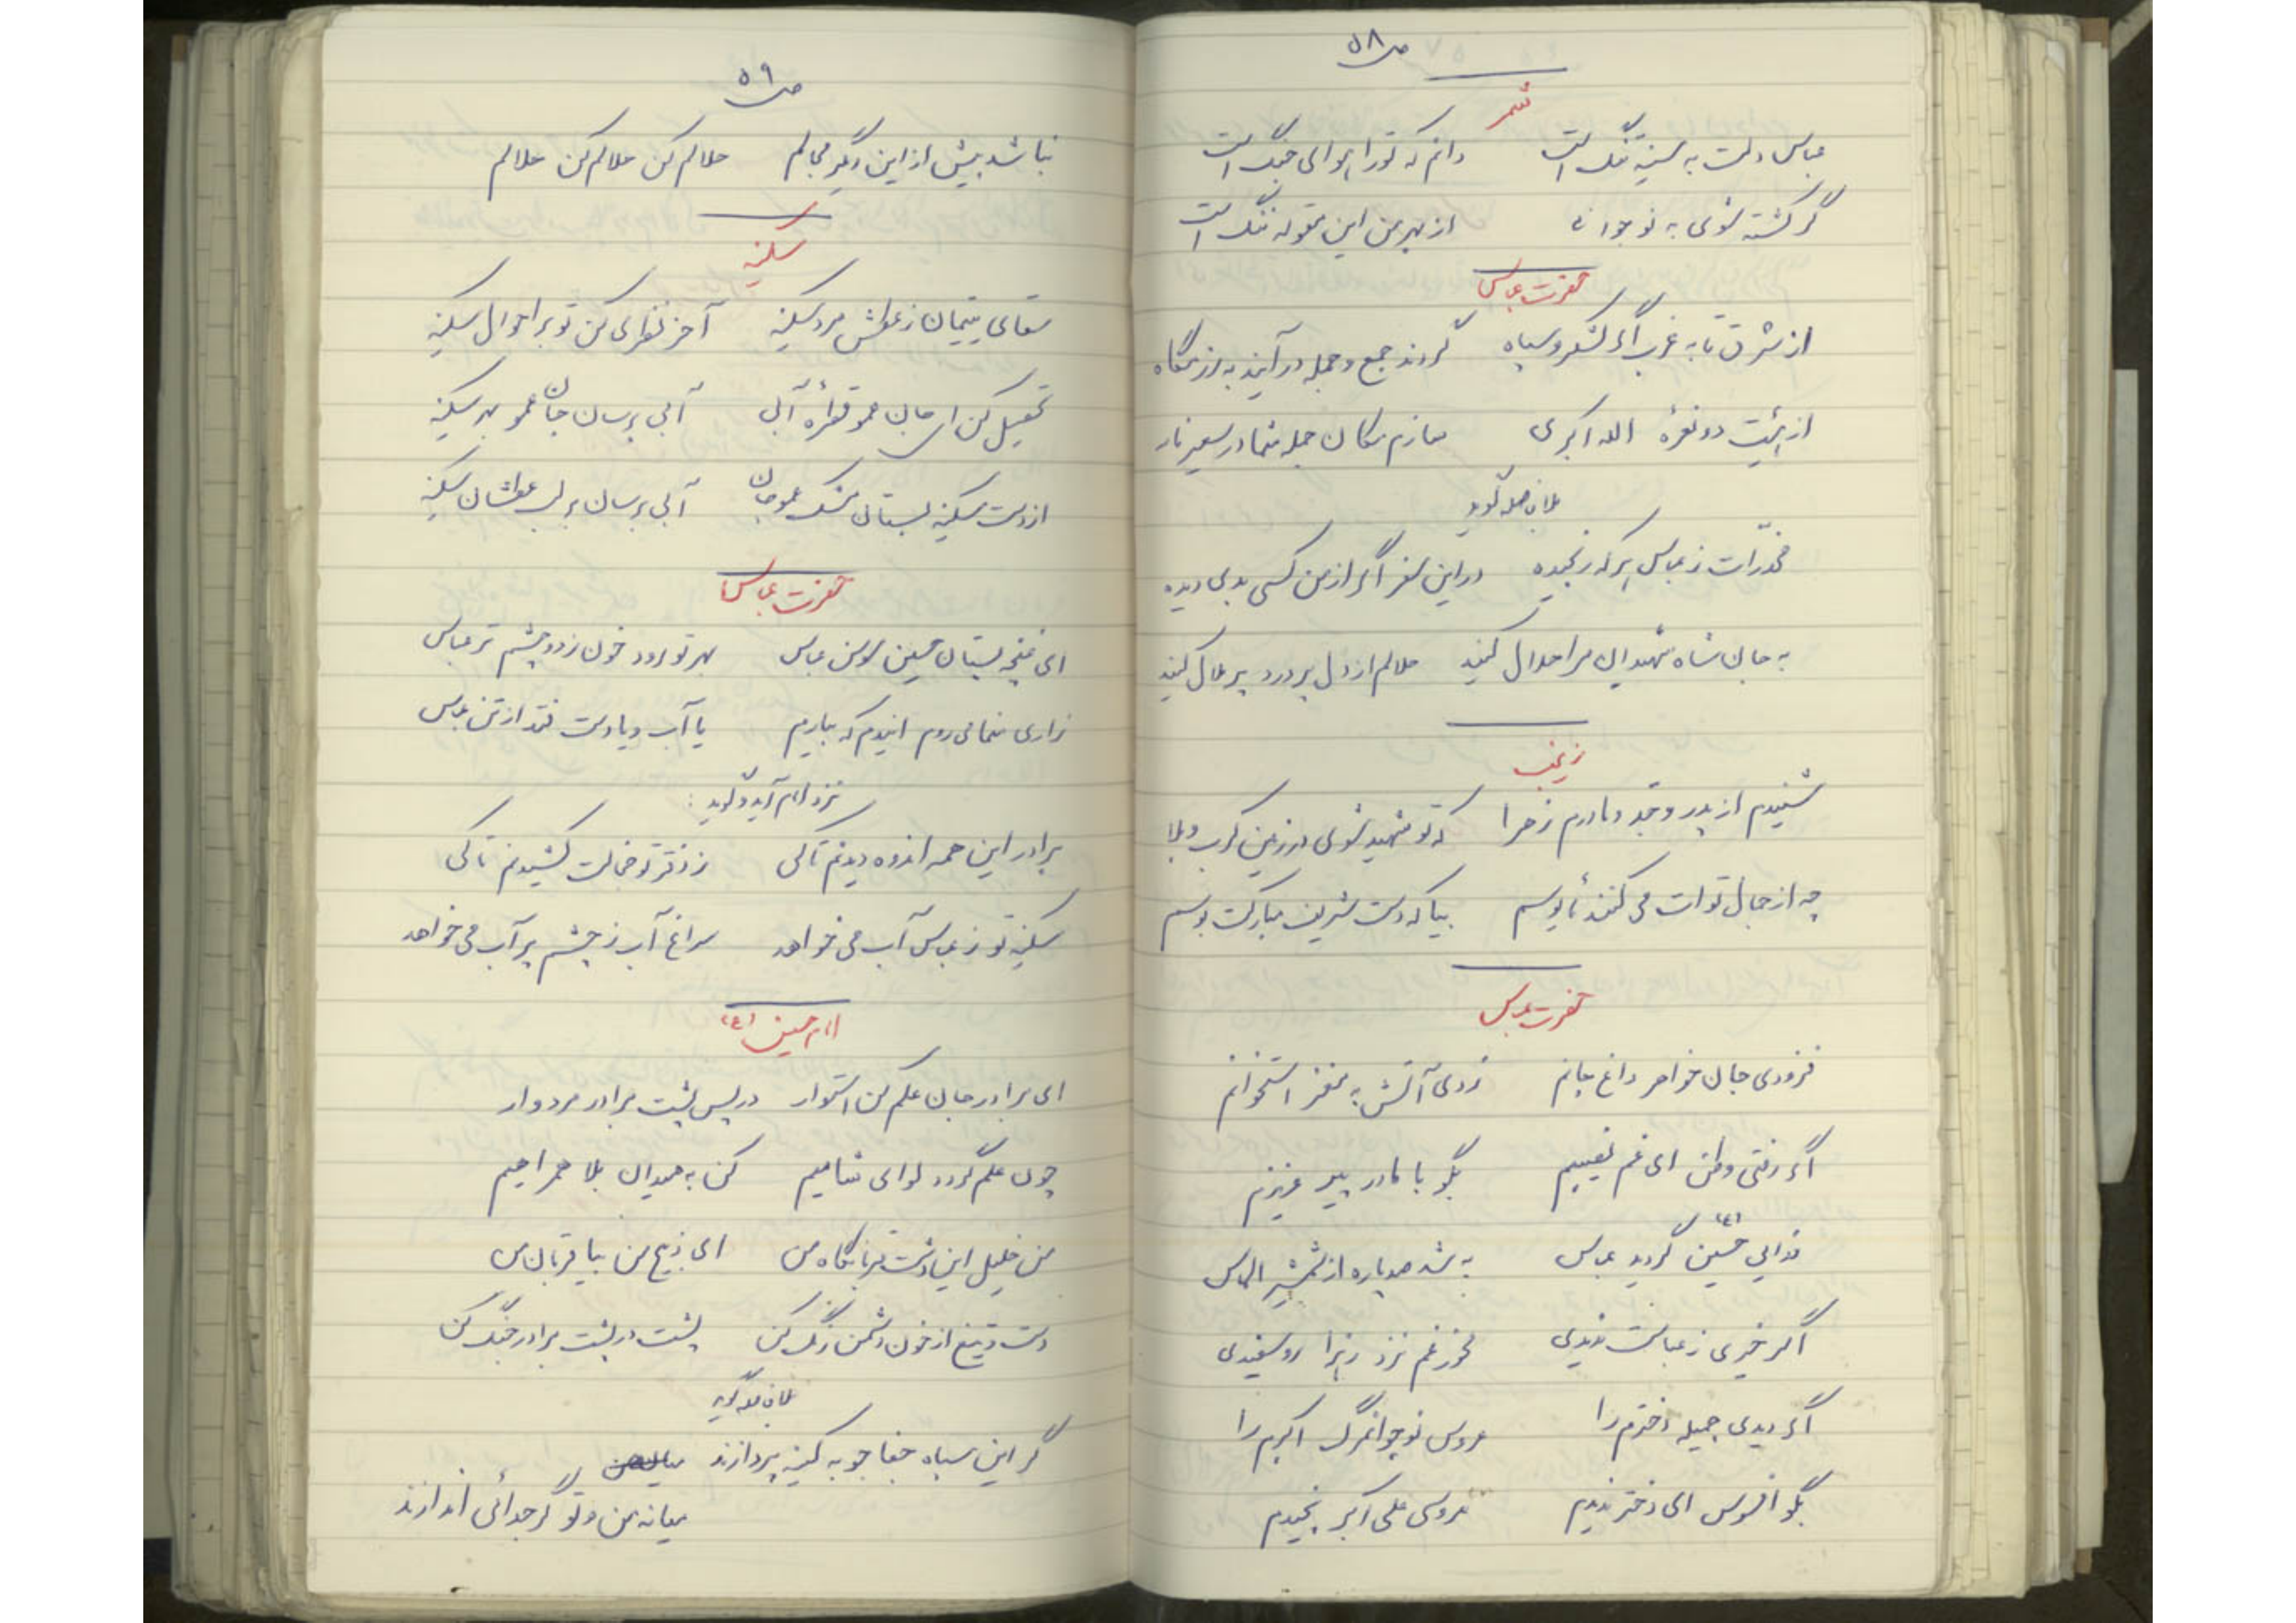 ص ۵۸
شمر
عباس دلت به سینه تنگ است دانم که تو را هوای جنگ است
گر کشته شوی به نوجوانی از بهر من این مقوله ننگ است
حضرت عباس
از شرق تا به غرب اگر لشکر و سپاه گردند جمع و جمله در آیند به رزمگاه
از هیئت دو نعرهٔ الله اکبری سازم مکان جمله شما در سعیر نار
مخدّرات ز عباس هر که رنجیده در این سفر اگر از من کسی بدی دیده
به جان شاه شهیدان مرا حلال کنید حلالم از دل پر درد پر ملال کنید
زینب
شنیدم از پدر و جد و مادرم زهرا که تو شهید شوی در زمین کرب و بلا
چه از جمال تو ات می کنند مأیوسم بیا که دست شریف مبارکت بوسم
حضرت عباس
فزودی جان خواهر داغ جانم زدی آتش به مغز استخوانم
اگر رفتی وطن ای غم نصیبم بگو با مادر پیر عزیزم
فدایی حسین (ع) گردید عباس به شد صد پاره از شمشیر الماس
اگر خیری ز عباست ندیدی مخور غم نزد زهرا رو سفیدی
اگر دیدی جمیله دخترم را عروس نوجوانمرگ اکبرم را
بگو افسوس ای دختر ندیدم عروسی علی اکبر نچیدم
ص ۵۹
نباشد بیش از این دیگر مجالم حلالم کن حلالم کن حلالم
سکینه
سقای یتیمان ز عطش مرد سکینه آخر نظری کن تو بر احوال سکینه
تعجیل کن ای جان عمو قطرهٔ آبی آبی برسان جان عمو بهر سکینه
از دست سکینه بستان مشک عمو جان آبی برسان بر لب عطشان سکینه
حضرت عباس
ای غنچه بستان حسین سوسن عباس بهر تو رود خون ز دو چشم تر عباس
زاری منما می روم ایندم که بیارم یا آب و یا دست فتد از تن عباس
نزد امام آید و گوید:
برادر این همه اندوه دیدنم تا کی ز دختر تو خجالت کشیدنم تا کی
سکینه تو ز عباس آب می خواهد سراغ آب ز چشم پر آب می خواهد
امام حسین (ع)
ای برادر جان علم کن استوار در پس پشت برادر مرد وار
چون علم گردد لوای شاهیم کن به میدان بلا همراهیم
من خلیل این دشت قربانگاه من ای ذبیح من بیا قربان من
دست و تیغ از خون دشمن رنگ کن پشت در پشت برادر جنگ کن
گر این سپاه جفا جو به کینه پردازند
میانه من و تو گر جدائی اندازند